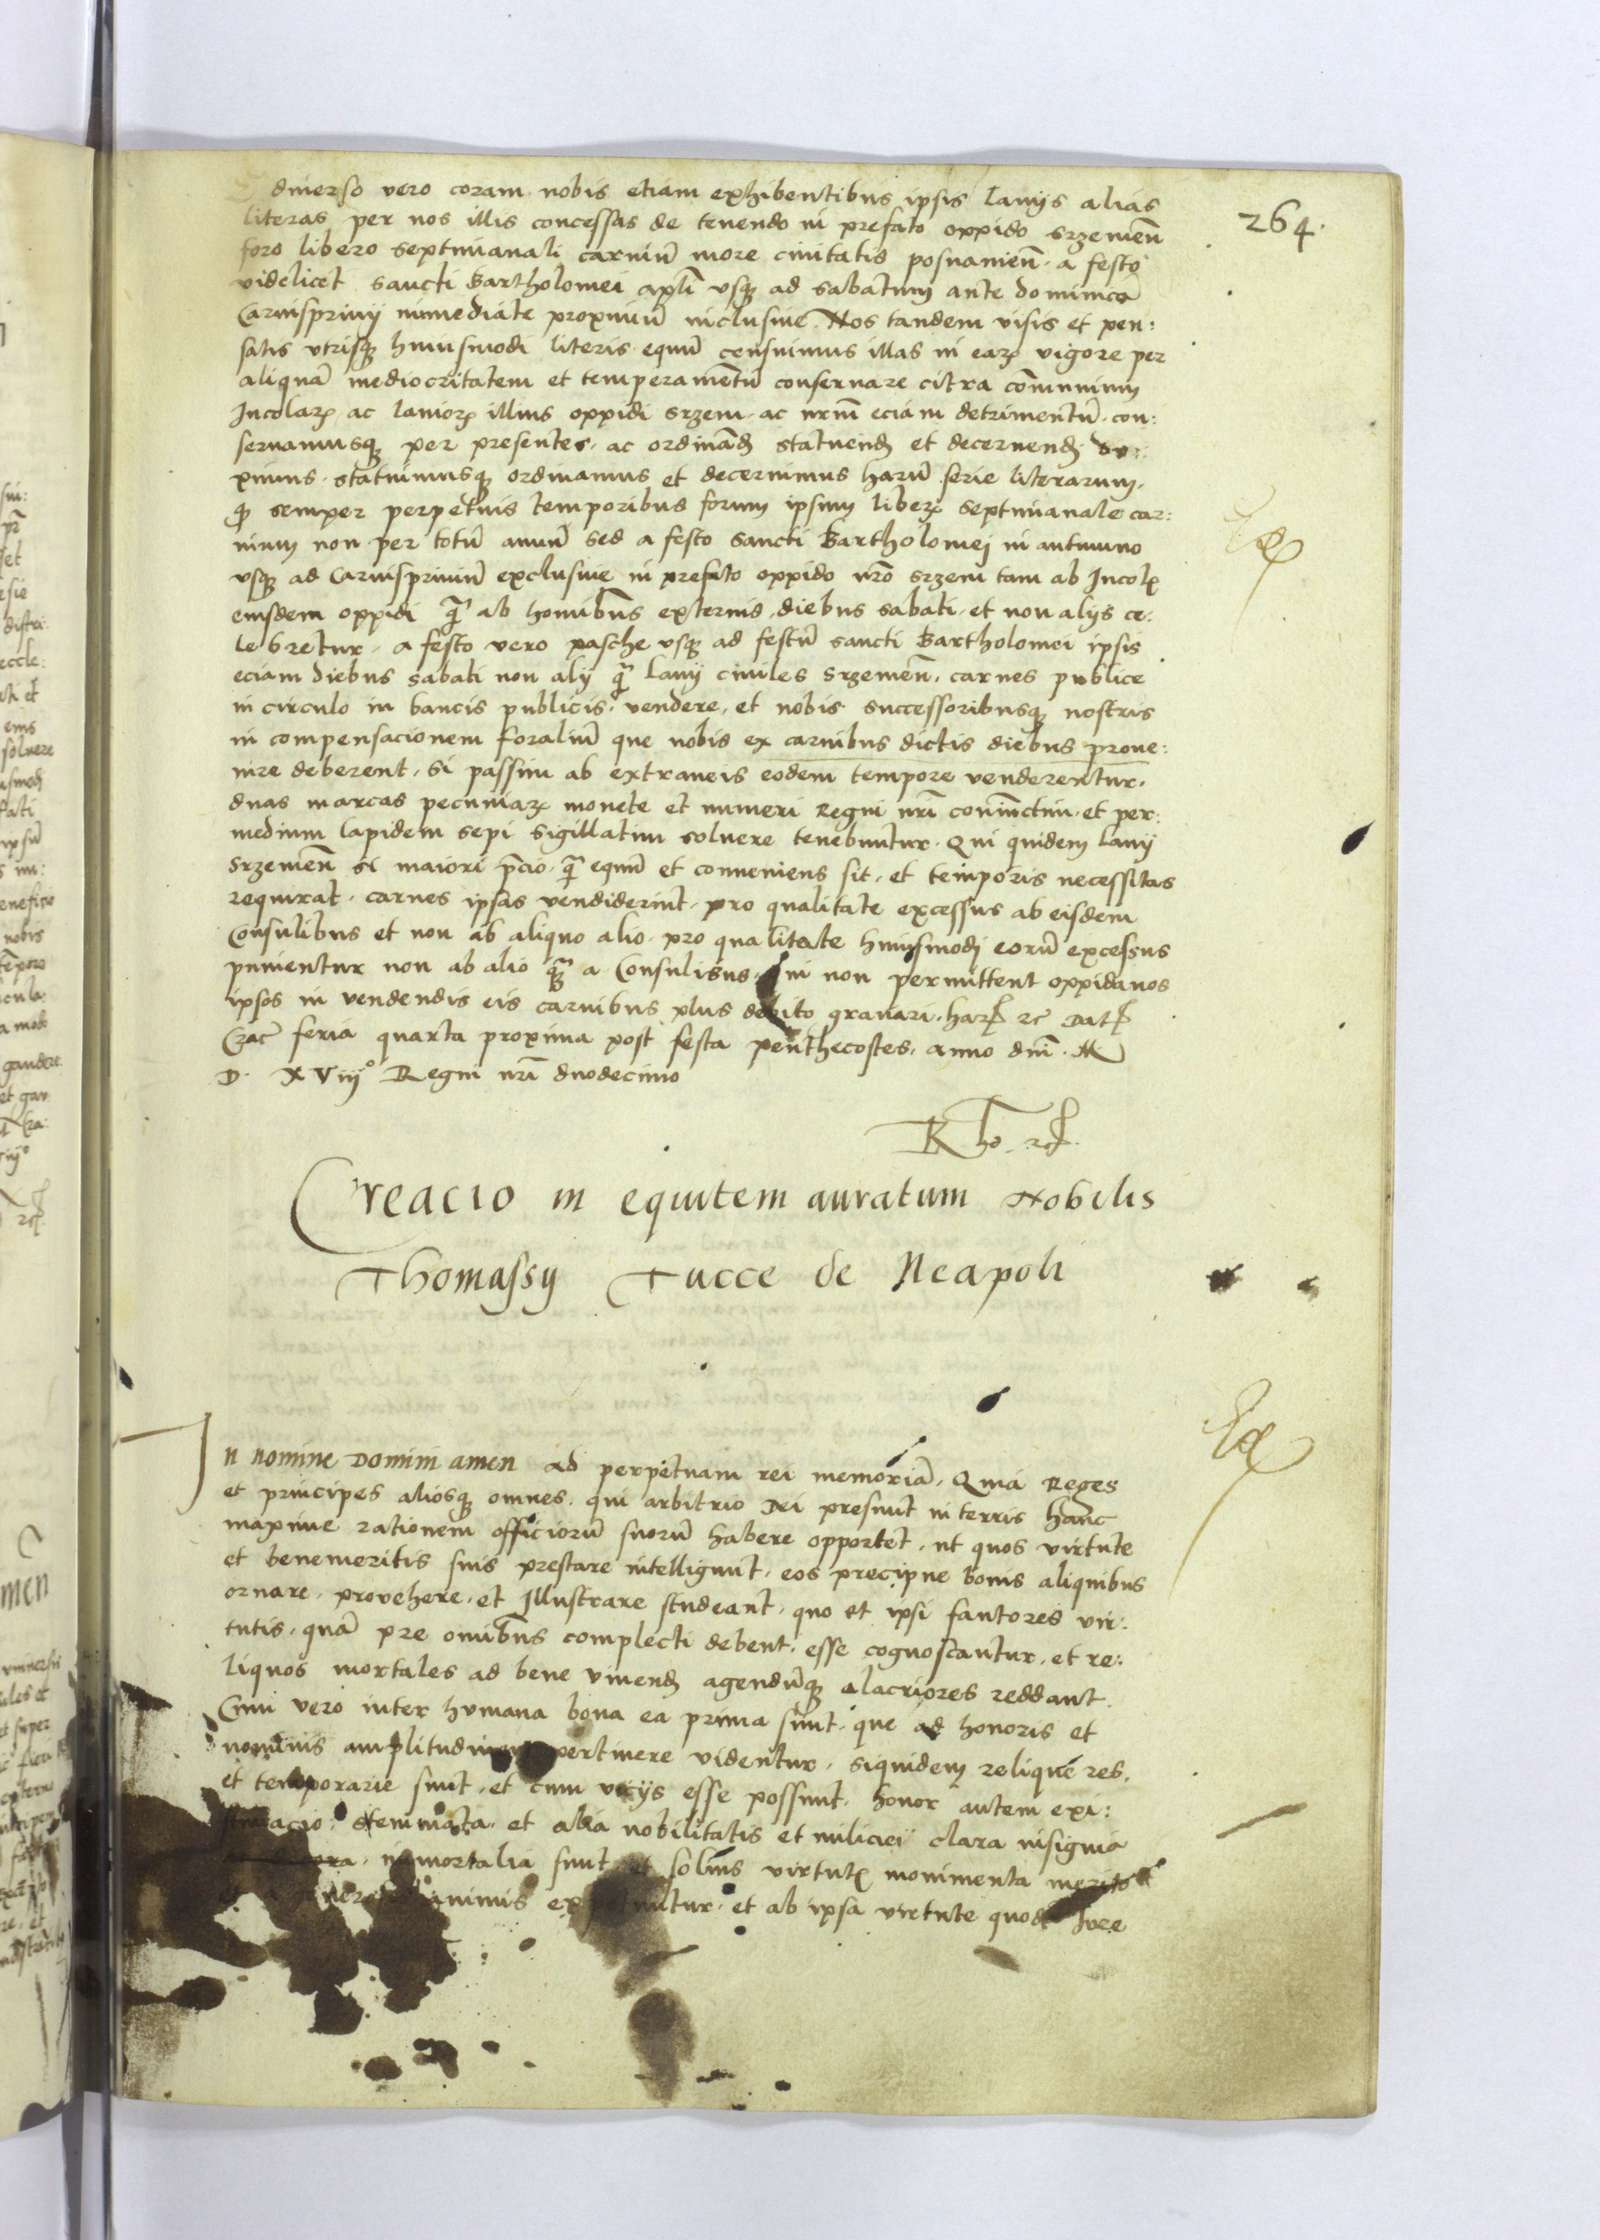 264.
E diuerso vero coram nobis etiam exhibentibus ipsis lanijs alias
literas per nos illis concessas de tenendo in prefato oppido srzemen̄
foro libero septimanali carniū more ciuitatis posnanien̄. a festo
videlicet sancti Bartholomei apłi vsqꝫ ad sabatum ante dominicā
Carnispriuij immediate proximū inclusiue. Nos tandem visis et pen:
satis vtrisqꝫ huiusmodi literis equū censuimus illas in earꝝ vigore per
aliquā mediocritatem et temperamentū conseruare citra cōmunium
Incolarꝝ ac laniorꝝ illius oppidi srzem. ac nrm̄ eciam detrimentū. con:
seruamusqꝫ per presentes. ac ordinād̨ statuend̨ et decernend̨ du:
ximus. statuimusqꝫ ordinamus et decernimus harū serie literarum.
ꝙ semper perpetuis temporibus forum ipsum liberꝝ septimanale car:
nium non per totū annū sed a festo sancti Bartholomej in autumno
vsqꝫ ad Carnispriuiū exclusiue in prefato oppido nrō srzem tam ab Incolꝭ
eiusdem oppidi q̄ȝ ab homibūs externis diebus sabati. et non alijs ce:
lebretur. a festo vero pasche vsqꝫ ad festū sancti Bartholomei ipsis
eciam diebus sabati non alij q̄ȝ lanij ciuiles srzemen̄. carnes publice
in circulo in bancis publicis. vendere. et nobis successoribusqꝫ nostris
in compensacionem foraliū que nobis ex carnibus dictis diebus proue:
nire deberent. si passim ab extraneis eodem tempore venderentur.
duas marcas pecuniarꝝ monete et numeri Regni nrī coniunctim. et per:
medium lapidem sepi sigillatim soluere tenebuntur. Qui quidem lanij
srzemen̄ si maiori p̄cio q̄ȝ equū et conueniens sit. et temporis necessitas
requirat. carnes ipsas vendiderint. pro qualitate excessus ab eisdem
Consulibus et non ab aliquo alio. pro qualitate huiusmodj eorū excessus
punientur non ab alio q̄ȝ a Consulibus. qui non permittent oppidanos
ipsos in vendendis eis carnibus plus debito grauari. harꝝ rc̄ Datꝭ
Crac̄ feria quarta proxima post festa penthecostes. anno dnī. M
D. XViij° Regni nrī duodecimo
Creacio in equitem auratum Nobilis
Thomassij Tucce de Neapoli
In nomine Domini amen Ad perpetuam rei memoriā. Quia Reges
et principes aliosqꝫ omnes. qui arbitrio Dei presunt in terris hanc
maxime rationem officiorū suorū habere opportet. ut quos virtute
et benemeritis suis prestare intelligunt. eos precipue bonis aliquibus
ornare. prouehere. et Illustrare studeant. quo et ipsi fautores vir:
tutis. quā pre omībus complecti debent. esse cognoscantur. et re:
liquos mortales ad bene viuend̨ agendūqꝫ alacriores reddant.
Cum vero inter humana bona ea prima sunt. que ad honoris et
nominis amplitudinem pertinere videntur. siquidem relique res.
et temporarie sunt. et cum vicijs esse possunt. honor autem exi:
stimacio. stemmata. et alia nobilitatis et miliciei clara insignia
immortalia sunt et solius virtutꝭ monimenta merito
animis expetuntur. et ab ipsa virtute quodā Iure